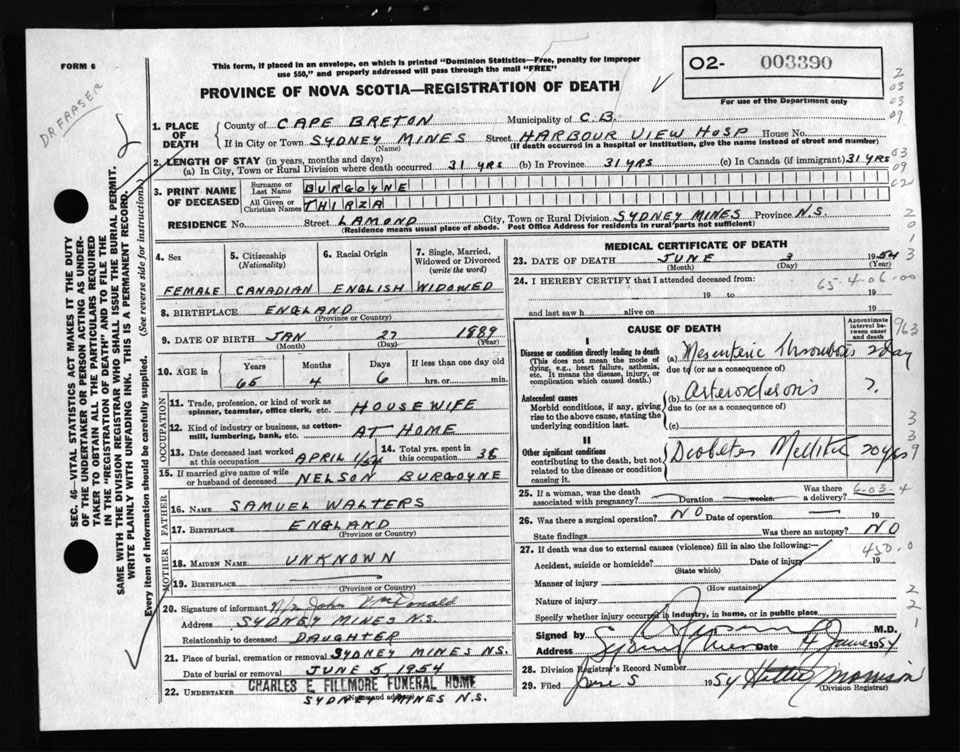 FORM 6
This form, if placed in an envelope, on which is printed "Dominion Statistics—Free, penalty for improper
use $50," and properly addressed will pass through the mail "FREE"
O2- 003390
For use of the Department only
PROVINCE OF NOVA SCOTIA—REGISTRATION OF DEATH
DR FRASER
1. PLACE OF DEATH
County of CAPE BRETON Municipality of C.B.
If in City or Town SYDNEY MINES Street HARBOUR VIEW HOSP House No.
(Name) (If death occurred in a hospital or institution, give the name instead of street and number)
2. LENGTH OF STAY (in years, months and days)
(a) In City, Town or Rural Division where death occurred 31 YRS (b) In Province 31 YRS (c) In Canada (if immigrant) 31 YRS
3. PRINT NAME OF DECEASED
Surname or Last Name BURGOYNE
All Given or Christian Names THIRZA
RESIDENCE No. Street LAMOND City, Town or Rural Division SYDNEY MINES Province N.S.
(Residence means usual place of abode. Post Office Address for residents in rural parts not sufficient)
4. Sex FEMALE
5. Citizenship (Nationality) CANADIAN
6. Racial Origin ENGLISH
7. Single, Married, Widowed or Divorced (write the word) WIDOWED
8. BIRTHPLACE ENGLAND
(Province or Country)
9. DATE OF BIRTH JAN 27 1889
(Month) (Day) (Year)
10. AGE in Years Months Days If less than one day old
65 4 6 hrs. or min.
OCCUPATION
11. Trade, profession, or kind of work as
spinner, teamster, office clerk, etc. HOUSEWIFE
12. Kind of industry or business, as cotton-
mill, lumbering, bank, etc. AT HOME
13. Date deceased last worked
at this occupation APRIL 1/54
14. Total yrs. spent in
this occupation 38
15. If married give name of wife
or husband of deceased NELSON BURGOYNE
FATHER
16. NAME SAMUEL WALTERS
17. BIRTHPLACE ENGLAND
(Province or Country)
MOTHER
18. MAIDEN NAME UNKNOWN
19. BIRTHPLACE
(Province or Country)
20. Signature of informant John McDonald
Address SYDNEY MINES N.S.
Relationship to deceased DAUGHTER
21. Place of burial, cremation or removal SYDNEY MINES NS.
Date of burial or removal JUNE 5 1954
22. UNDERTAKER CHARLES E. FILLMORE FUNERAL HOME
(Name and address)
SYDNEY MINES N.S.
MEDICAL CERTIFICATE OF DEATH
23. DATE OF DEATH JUNE 3 1954
(Month) (Day) (Year)
24. I HEREBY CERTIFY that I attended deceased from:
65-4-06-00
19 to 19
and last saw h alive on 19
CAUSE OF DEATH
Approximate interval between onset and death
I
Disease or condition directly leading to death
(This does not mean the mode of
dying, e.g., heart failure, asthenia,
etc. It means the disease, injury, or
complication which caused death.)
(a) Mesenteric Thrombosis 2 day
due to (or as a consequence of)
Antecedent causes
Morbid conditions, if any, giving
rise to the above cause, stating the
underlying condition last.
(b) Arterosclerosis ?
due to (or as a consequence of)
(c)
II
Other significant conditions
contributing to the death, but not
related to the disease or condition
causing it.
Diabetes Mellitus 20 yrs
25. If a woman, was the death
associated with pregnancy? Duration weeks. Was there
a delivery? 6-03-4
26. Was there a surgical operation? NO Date of operation 19
State findings Was there an autopsy? NO
27. If death was due to external causes (violence) fill in also the following:— 450-0
Accident, suicide or homicide? Date of injury 19
(State which)
Manner of injury
(How sustained)
Nature of injury
Specify whether injury occurred in industry, in home, or in public place
Signed by M.D.
Address Sydney Mines Date 4 June 1954
28. Division Registrar's Record Number
29. Filed June 5 1954 Hattie Morrison
(Division Registrar)
SEC. 46—VITAL STATISTICS ACT MAKES IT THE DUTY
OF THE UNDERTAKER OR PERSON ACTING AS UNDER-
TAKER TO OBTAIN ALL THE PARTICULARS REQUIRED
IN THE "REGISTRATION OF DEATH" AND TO FILE THE
SAME WITH THE DIVISION REGISTRAR WHO SHALL ISSUE THE BURIAL PERMIT.
WRITE PLAINLY WITH UNFADING INK. THIS IS A PERMANENT RECORD.
Every item of information should be carefully supplied. (See reverse side for instructions)
2
03
03
09
03
09
02
2
0
1
3
963
3
3
9
2
2
1